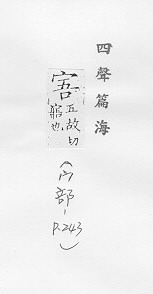 四聲篇海
五故切
也
(宀部-P.243)